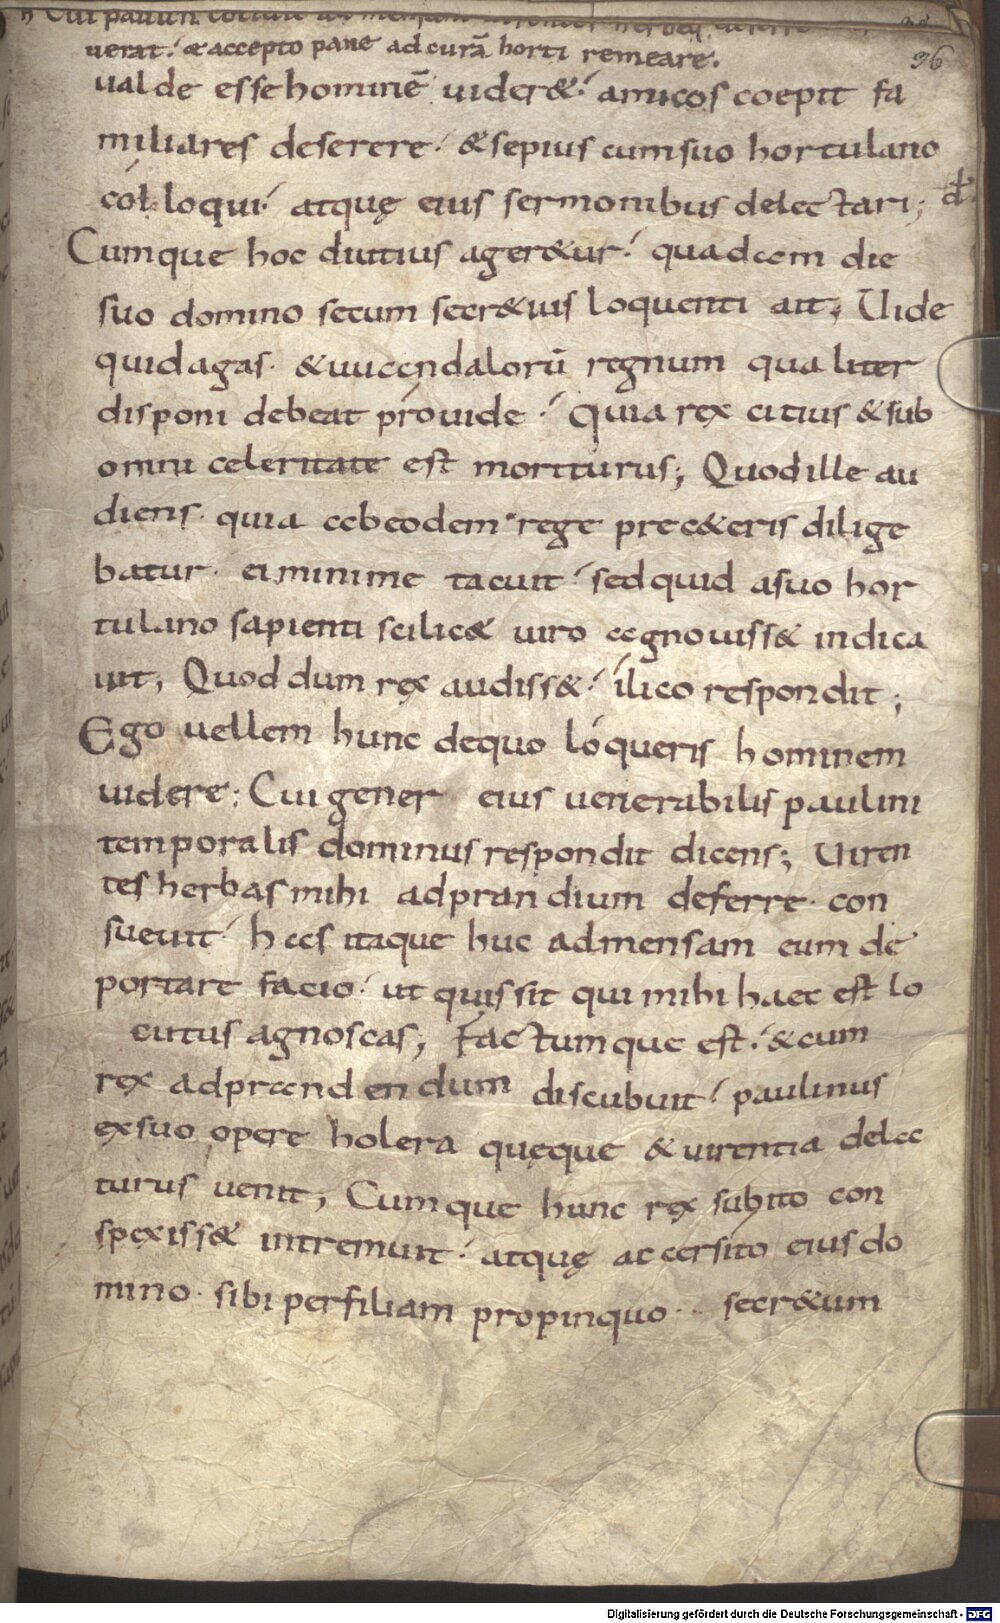 uerat. & accepto pane ad curā horti remeare.
96
ualde esse hominē uider&. amicos coepit fa
miliares deserere. & sepius cum suo hortulano
colloqui. atquę eius sermonibus delectari; đ
Cumque hoc diutius ager&ur. quadam die
suo domino secum secr&uis loquenti ait; Uide
quid agas. & uuandalorū regnum qualiter
disponi debeat prouide. Quia rex citius & sub
omni celeritate est moriturus; Quod ille au
diens. quia ab eodem rege pre c&eris dilige
batur. ei minime tacuit. sed quid a suo hor
tulano sapienti scilic& uiro agnouiss& indica
uit; Quod dum rex audiss&. ilico respondit;
Ego uellem hunc de quo loqueris hominem
uidere; Cui gener eius uenerabilis paulini
temporalis dominus respondit dicens; Uiren
tes herbas mihi ad prandium deferre. con
sueuit. has itaque huc ad mensam eum de
portare facio. ut quis sit qui mihi haec est lo
cutus agnoscas; Factumque est. & cum
rex ad prandendum discubuit. paulinus
ex suo opere holera quęque & uirentia dela
turus uenit; Cumque hunc rex subito con
spexiss& intremuit. atquę accersito eius do
mino. sibi per filiam propinquo.. secr&um
Digitalisierung gefördert durch die Deutsche Forschungsgemeinschaft - DFG